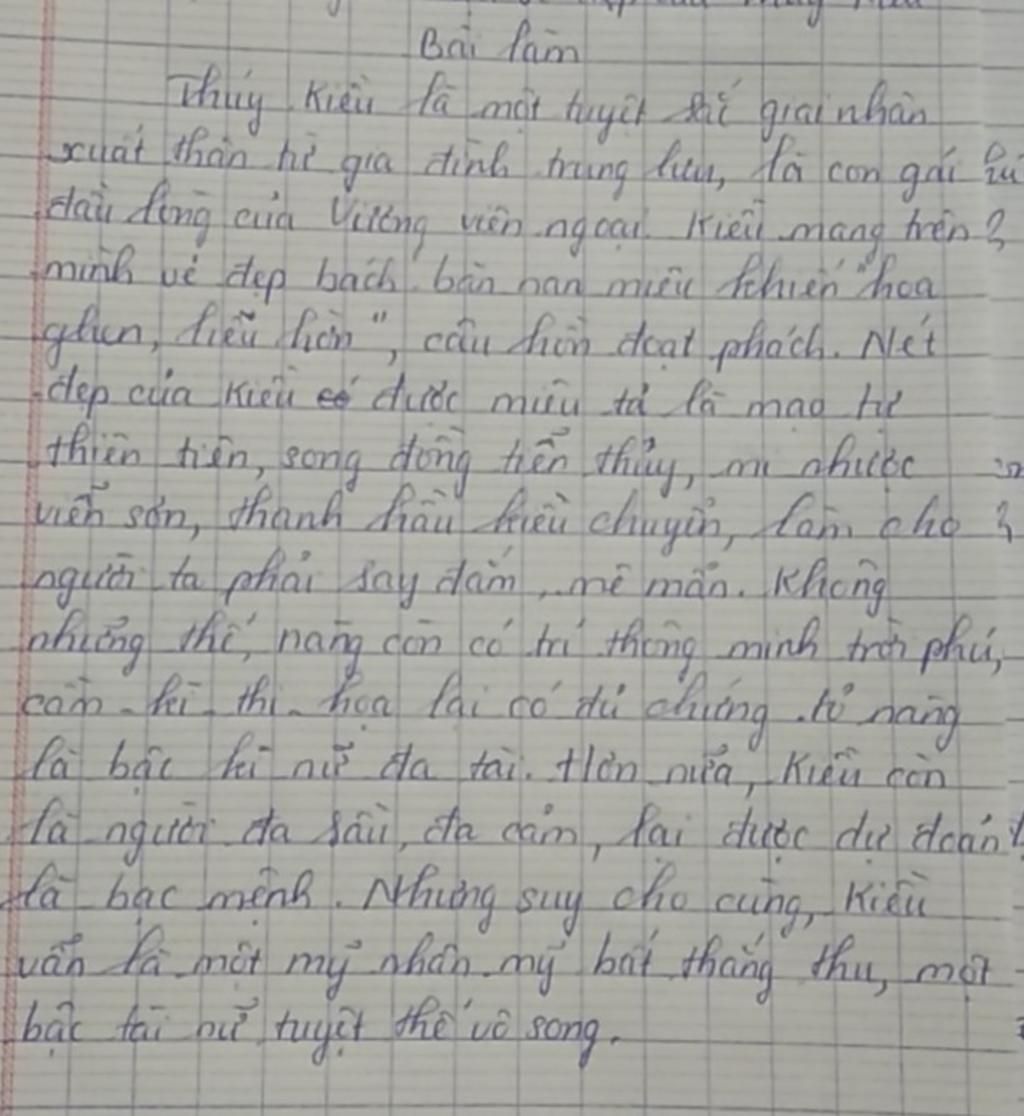 Bài làm
Thúy Kiều là một tuyệt thế giai nhân
xuất thân từ gia đình trung lưu, là con gái
đầu lòng của Vương viên ngoại. Kiều mang trên
mình vẻ đẹp bách bàn nan miêu khiến "hoa
ghen, liễu hờn", câu hồn đoạt phách. Nét
đẹp của Kiều có được miêu tả là mạo tự
thiên tiên, song đồng tiễn thủy, mi nhược
viễn sơn, thanh hầu kiều chuyển, làm cho
người ta phải say đắm, mê mẩn. Không
những thế, nàng còn có trí thông minh trời phú,
cầm - kì - thi - họa lại có đủ chứng tỏ nàng
là bậc kì nữ đa tài. Hơn nữa, Kiều còn
là người đa sầu, đa cảm, lại được dự đoán
là bạc mệnh. Nhưng suy cho cùng, Kiều
vẫn là một mỹ nhân mỹ bất thắng thu, một
bậc tài nữ tuyệt thế vô song.